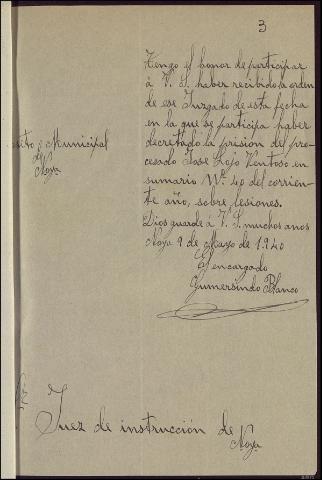 3
Tengo el honor de participar
á V. S. haber recibido la orden
de ese Juzgado de esta fecha
en la que se participa haber
decretado la prision del pro-
cesado José Lojo Ventoso en
sumario Nº 40 del corrien-
te año, sobre lesiones.
Dios guarde á V. S. muchos años
Noya 9 de Mayo de 1940
El encargado
Gumersindo Blanco
Municipal
de
Noya
Juez de instrucción de
Noya